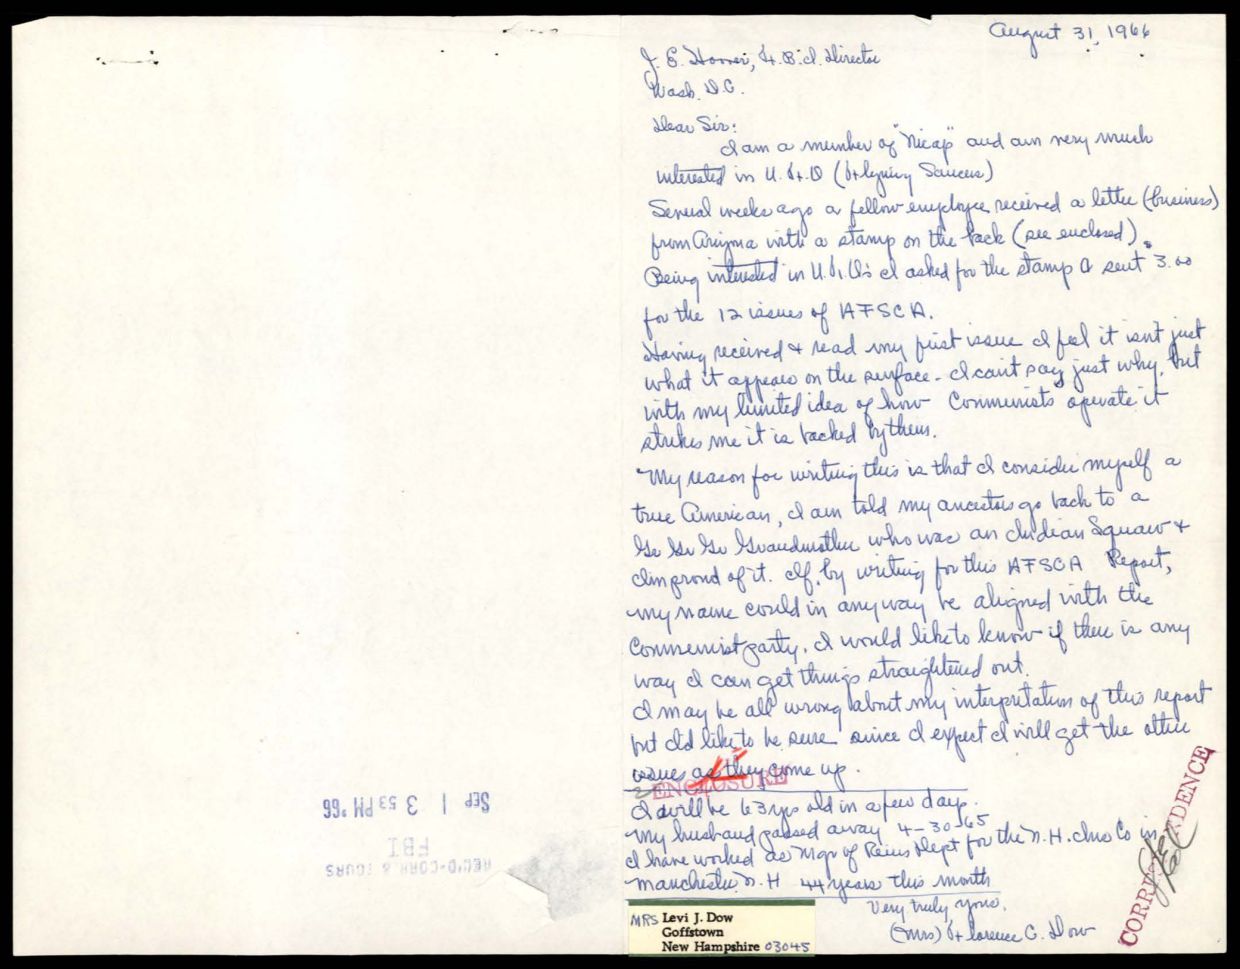 August 31, 1966
J. E. Hoover, F.B.I. Director
Wash. D.C.
Dear Sir:
I am a member of "Nicap" and am very much
interested in U.F.O (Flying Saucers)
Several weeks ago a fellow employee received a letter (business)
from Arizona with a stamp on the back (see enclosed).
Being interested in U.F.O's I asked for the stamp & sent 3.00
for the 12 issues of AFSCA.
Having received & read my first issue I feel it isn't just
what it appears on the surface - I can't say just why, but
with my limited idea of how Communists operate it
strikes me it is backed by them.
My reason for writing this is that I consider myself a
true American, I am told my ancestors go back to a
Gr Gr Gr Grandmother who was an Indian Squaw &
I'm proud of it. If, by writing for this AFSCA Report,
my name could in anyway be aligned with the
Communist party. I would like to know if there is any
way I can get things straightened out.
I may be all wrong about my interpretation of this report
but I'd like to be sure since I expect I will get the other
issues as they come up.
ENCLOSURE
I will be 63 yrs old in a few days.
My husband passed away 4-30-65
I have worked as Mgr of Reins Dept for the N.H. Ins Co in
Manchester N.H 44 years this month
Very truly yours,
(Mrs) Florence C. Dow
MRS Levi J. Dow
Goffstown
New Hampshire 03045
CORRESPONDENCE
SEP 1 3 53 PM '66
FBI
REC'D-CORR & TOURS